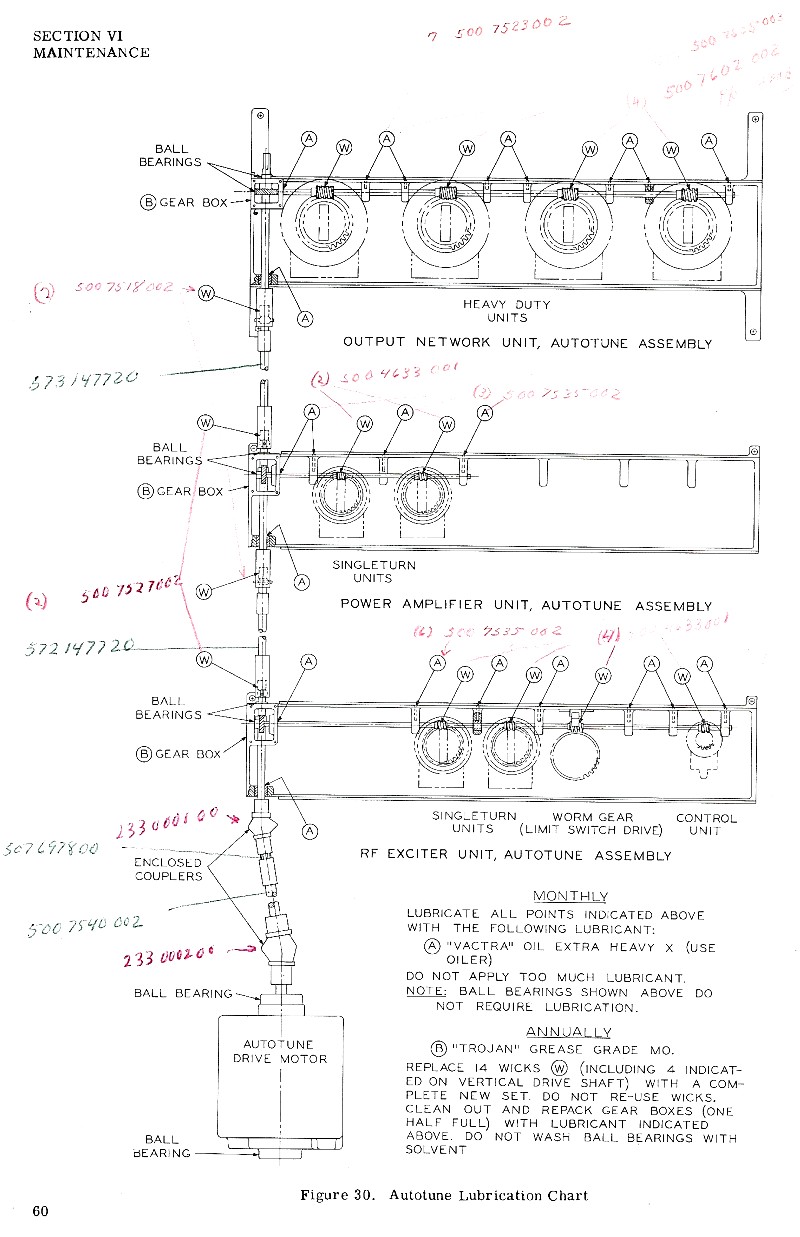 SECTION VI
MAINTENANCE
7 500 7523002
500 7602 002
(4)
BALL
BEARINGS
A
W
A
W
A
W
A
W
A
B GEAR BOX
(2) 500 7518 002
W
A
HEAVY DUTY
UNITS
OUTPUT NETWORK UNIT, AUTOTUNE ASSEMBLY
573147720
(2) 500 4633 001
(3) 500 7535 002
W
A
W
A
W
A
BALL
BEARINGS
B GEAR BOX
SINGLETURN
UNITS
W
A
(2) 500 7527002
POWER AMPLIFIER UNIT, AUTOTUNE ASSEMBLY
(6) 500 7535 002
(4)
572147720
W
A
A
W
A
W
A
W
A
W
A
BALL
BEARINGS
B GEAR BOX
233 0001 00
A
SINGLETURN
UNITS
WORM GEAR
(LIMIT SWITCH DRIVE)
CONTROL
UNIT
507697800
RF EXCITER UNIT, AUTOTUNE ASSEMBLY
ENCLOSED
COUPLERS
500 7540 002
233 000200
BALL BEARING
AUTOTUNE
DRIVE MOTOR
BALL
BEARING
MONTHLY
LUBRICATE ALL POINTS INDICATED ABOVE
WITH THE FOLLOWING LUBRICANT:
A "VACTRA" OIL EXTRA HEAVY X (USE
OILER)
DO NOT APPLY TOO MUCH LUBRICANT.
NOTE: BALL BEARINGS SHOWN ABOVE DO
NOT REQUIRE LUBRICATION.
ANNUALLY
B "TROJAN" GREASE GRADE MO.
REPLACE 14 WICKS W (INCLUDING 4 INDICAT-
ED ON VERTICAL DRIVE SHAFT) WITH A COM-
PLETE NEW SET. DO NOT RE-USE WICKS.
CLEAN OUT AND REPACK GEAR BOXES (ONE
HALF FULL) WITH LUBRICANT INDICATED
ABOVE. DO NOT WASH BALL BEARINGS WITH
SOLVENT
Figure 30. Autotune Lubrication Chart
60